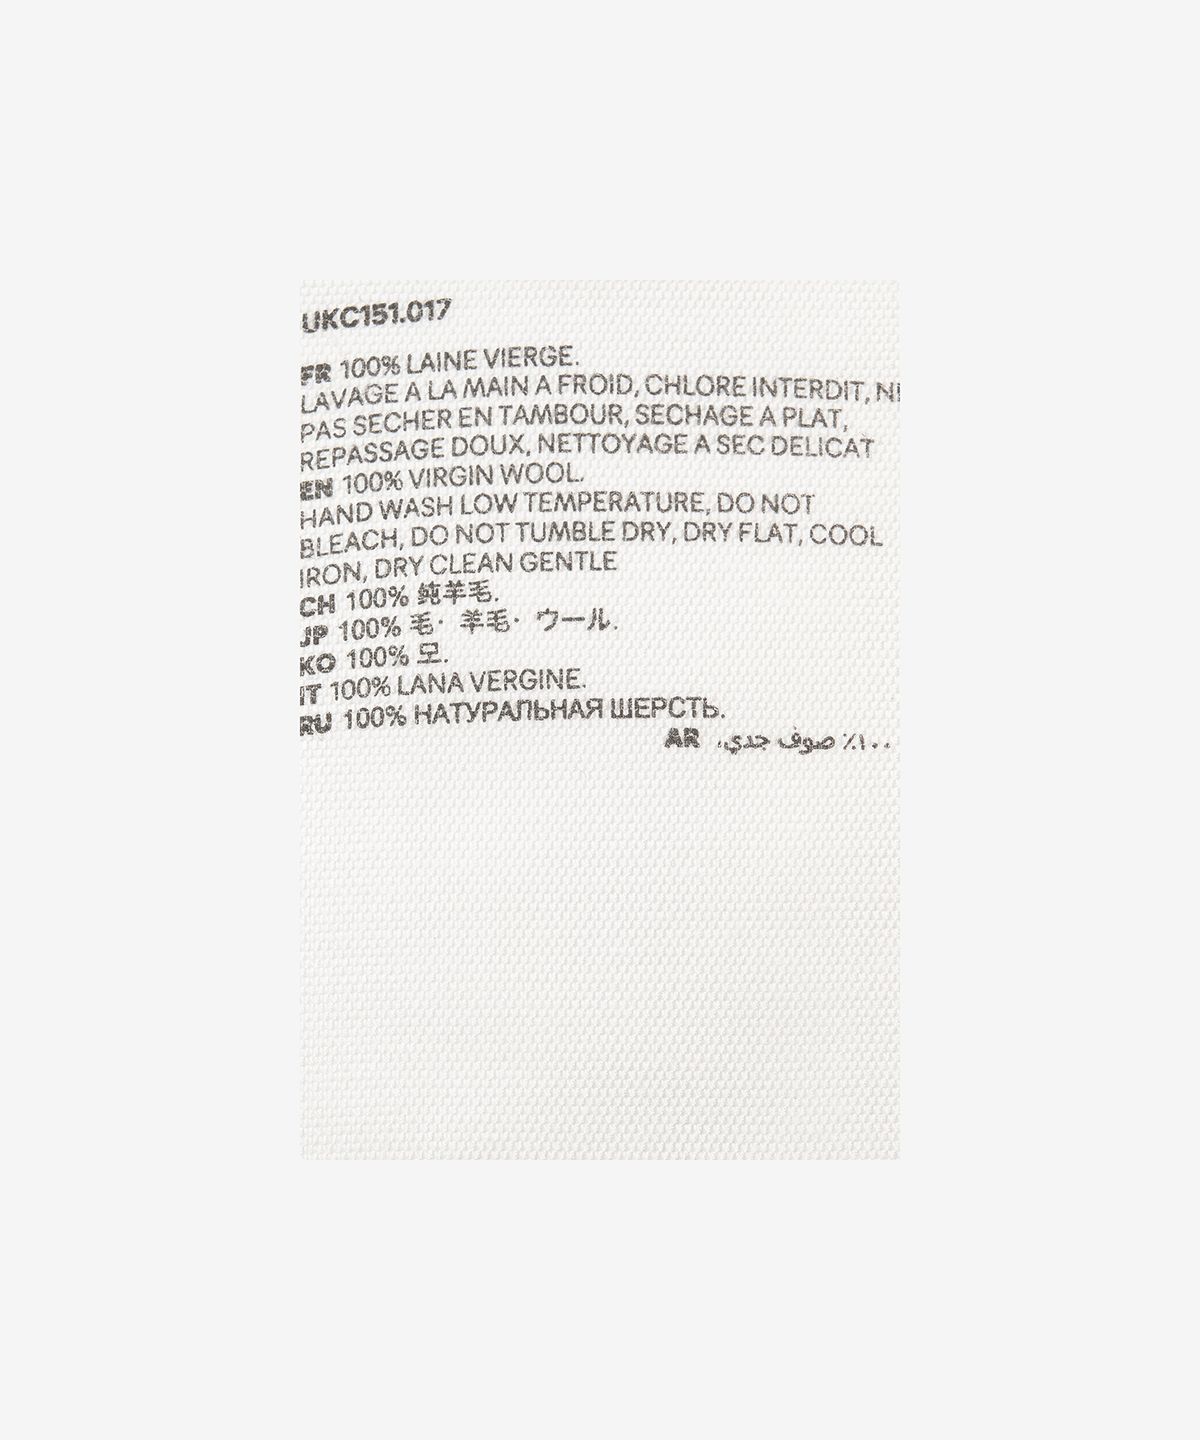 UKC151.017
FR 100% LAINE VIERGE.
LAVAGE A LA MAIN A FROID, CHLORE INTERDIT, N
PAS SECHER EN TAMBOUR, SECHAGE A PLAT,
REPASSAGE DOUX, NETTOYAGE A SEC DELICAT
EN 100% VIRGIN WOOL.
HAND WASH LOW TEMPERATURE, DO NOT
BLEACH, DO NOT TUMBLE DRY, DRY FLAT, COOL
IRON, DRY CLEAN GENTLE
CH 100% 纯羊毛.
JP 100% 毛· 羊毛· ウール.
KO 100% 모.
IT 100% LANA VERGINE.
RU 100% НАТУРАЛЬНАЯ ШЕРСТЬ.
AR ١٠٠٪ صوف جدي.